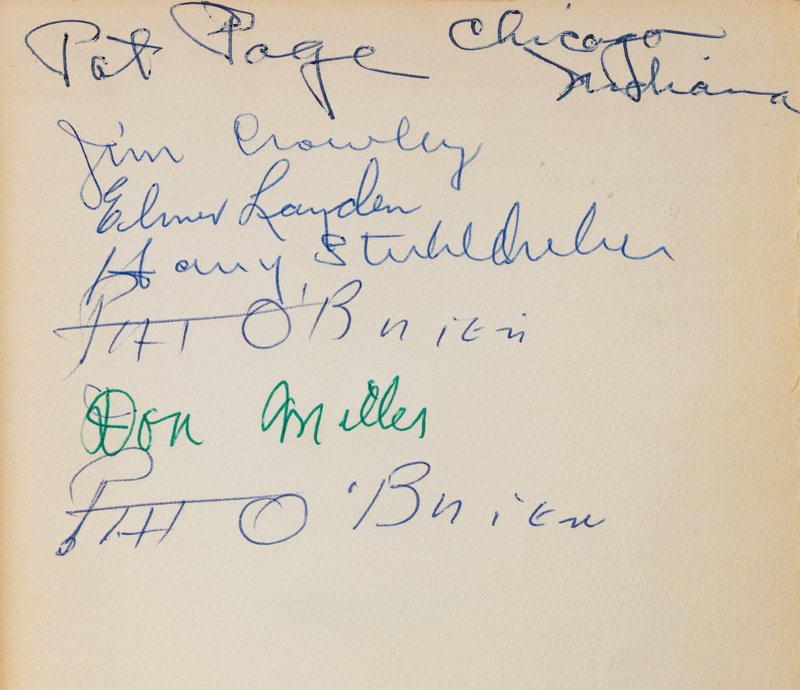 Pat Page Chicago
Indiana
Jim Crowley
Elmer Layden
Harry Stuhldreher
PAT O'BRIEN
Don Miller
PAT O'BRIEN